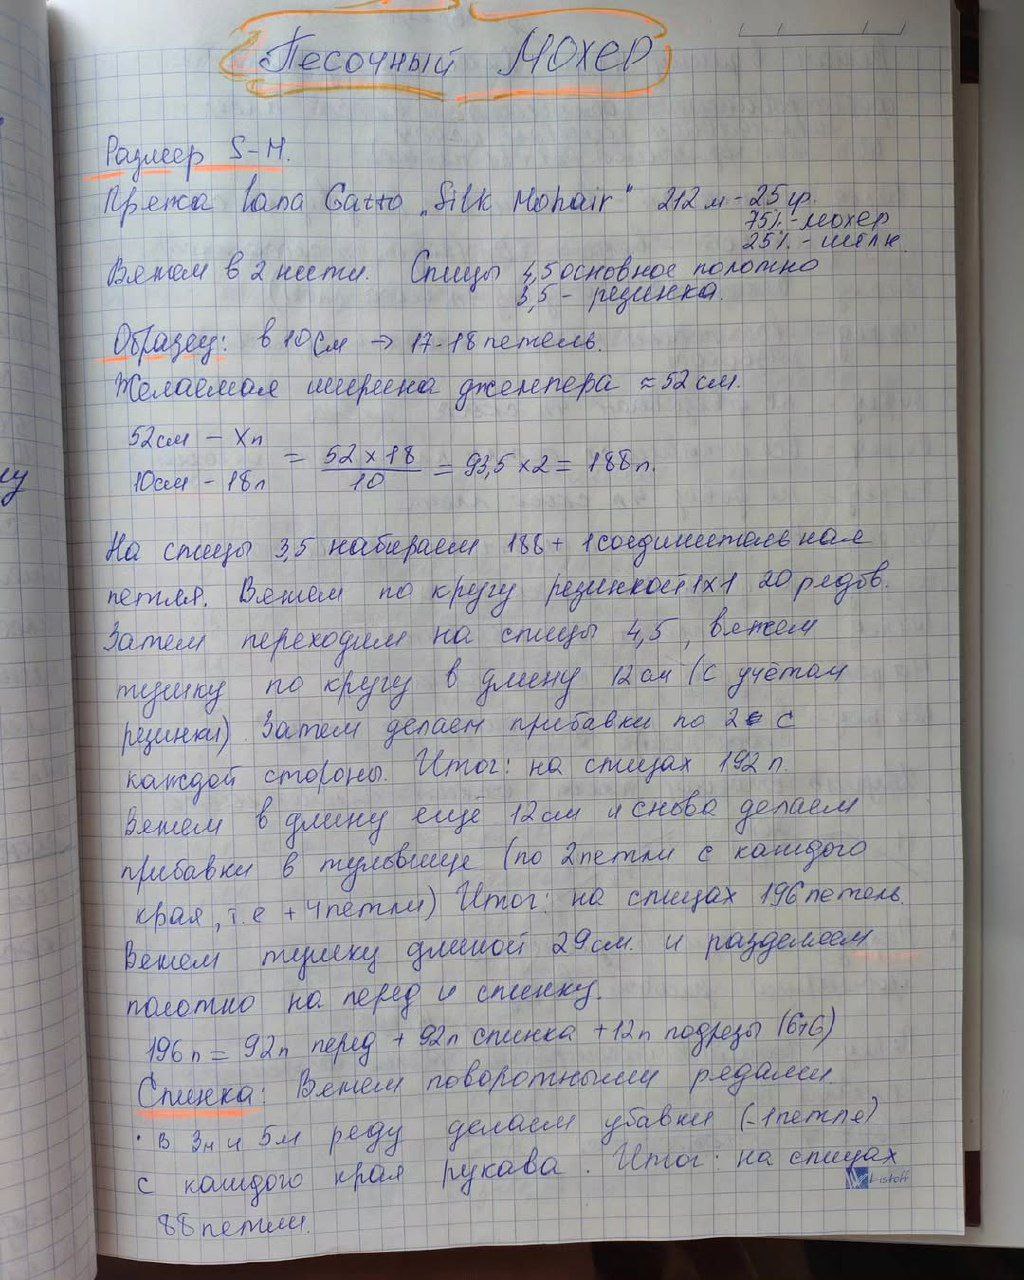 Песочный Мохер
Размер S-M.
Пряжа Lana Gatto „Silk Mohair" 212 м - 25 гр.
75% - мохер
25% - шёлк
Вяжем в 2 нити. Спицы 4,5 основное полотно
3,5 - резинка.
Образец: в 10 см → 17-18 петель.
Желаемая ширина джемпера ≈ 52 см.
52 см - Xп
10 см - 18п
= 52 × 18 / 10 = 93,5 × 2 = 188 п.
На спицы 3,5 набираем 188 + 1 соединительная
петля. Вяжем по кругу резинкой 1х1 20 рядов.
Затем переходим на спицы 4,5, вяжем
тушку по кругу в длину 12 см (с учётом
резинки). Затем делаем прибавки по 2 с
каждой стороны. Итог: на спицах 192 п.
Вяжем в длину ещё 12 см и снова делаем
прибавки в туловище (по 2 петли с каждого
края, т.е + 4 петли) Итог: на спицах 196 петель.
Вяжем тушку длиной 29 см. и разделяем
полотно на перед и спинку.
196 п = 92 п перед + 92 п спинка + 12 п подрезы (6+6)
Спинка: Вяжем поворотными рядами.
· в 3м и 5м ряду делаем убавки (-1 петля)
с каждого края рукава. Итог: на спицах
88 петли.
Listoff